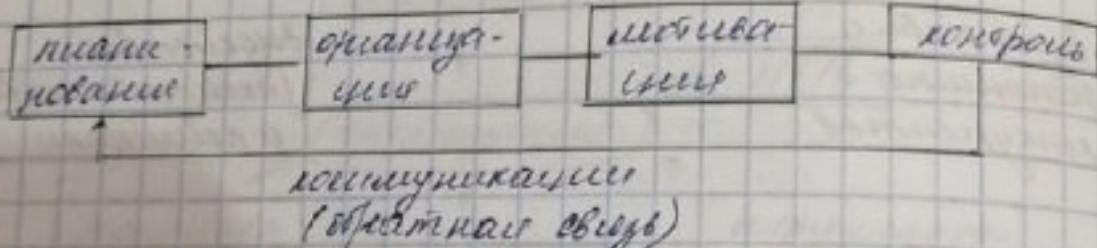 плани-
рование
организа-
ция
мотива-
ция
контроль
коммуникации
(обратная связь)